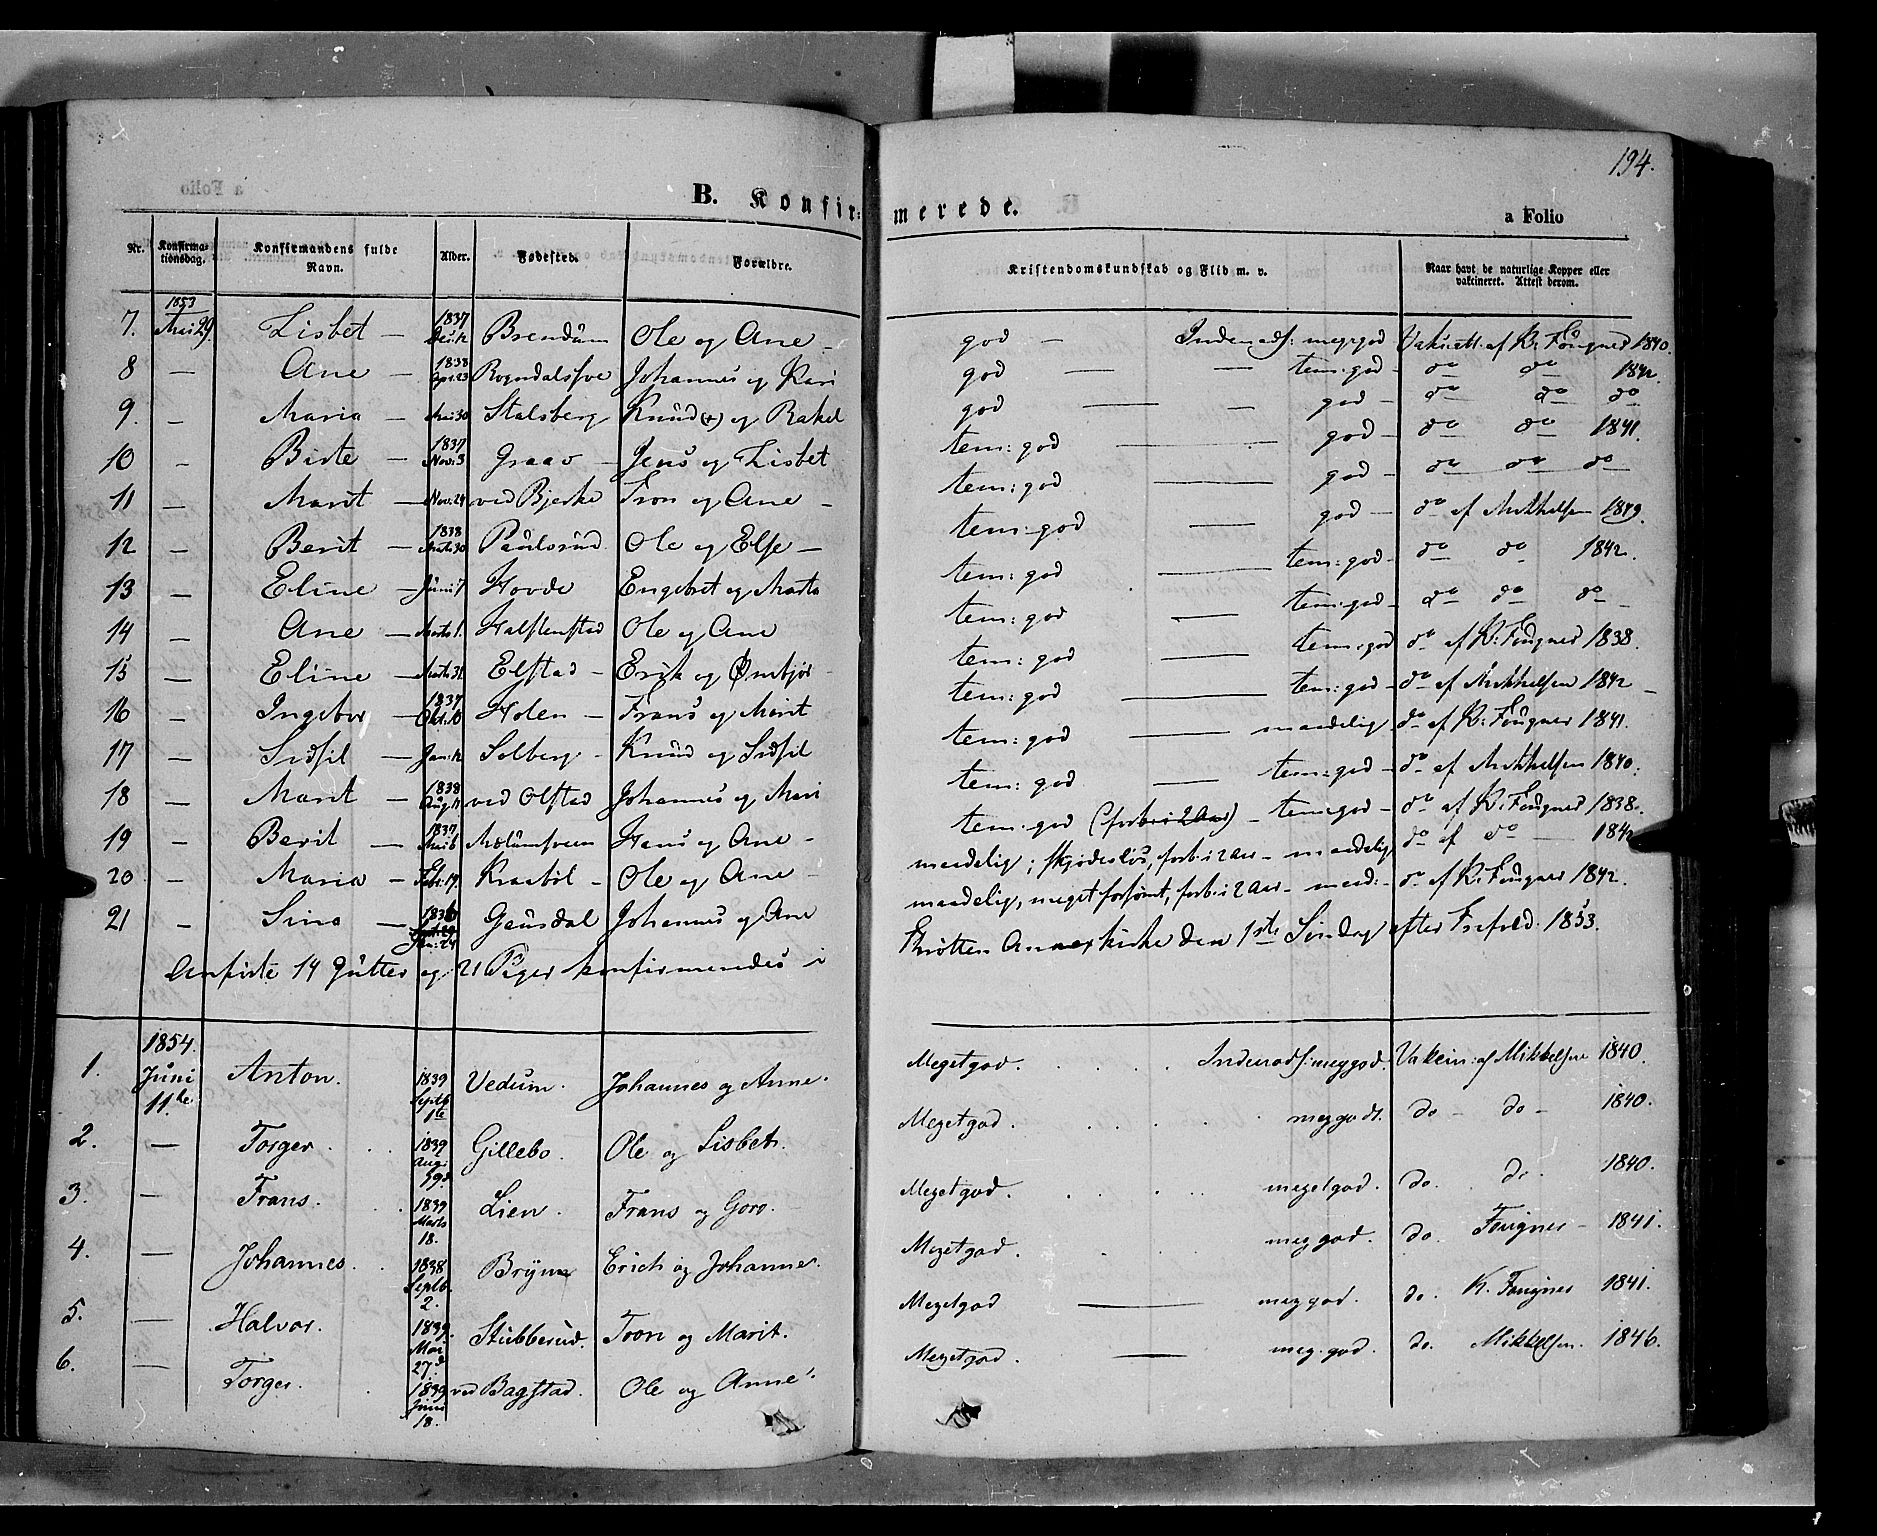 194.
B. Konfirmerede.
a Folio
Nr. Konfirmationsdag. Konfirmandens fulde Navn. Alder. Fødested. Forældre. Kristendomskundskab og Flid m. v. Naar havt de naturlige Kopper eller vakcineret. Attest derom.
7. 1853 Mai 29. Lisbet — 1837 Brendum Ole og Ane — god — Indenads: meg:god Vaks:att: af K: Fougner 1840.
8 — Ane — 1838 Apr:23 Johannes og Kari god — — tem:god — do do 1842.
9. — Maria — Mai 30 Stalsberg Knud (+) og Rakel god — — god — do do do
10 — Birte — 1837 Nov:3 Graav — Jens og Lisbet tem:god — — god — do do 1841.
11 — Marit — Nov:24 ved Bjerke Tron og Ane — tem:god — god — do do do
12 — Berit — 1838 Marts 30 Paulsrud Ole og Else — tem:god — god — do af Mikkelsen 1849.
13 — Eline — Juni 7 Hovde Engebret og Marte tem:god — tem:god — do do 1842.
14 — Ane — Marts 1. Halstenstad Ole og Ane tem:god — tem:god — do do do —
15 — Eline — Marts 31 Elstad — Erik og Ømbjør — tem:god — tem:god do af K: Fougner 1838.
16 — Ingebor — 1837 Okt:10 Holen — Frans og Marit tem:god — tem:god — do af Mikkelsen 1842 —
17 — Sidsil — Jan:12 Solberg — Knud og Sidsil tem:god — maadelig do af K: Fougner 1841.
18 — Marit — 1838 Aug:11 ved Olstad Johannes og Mari tem:god — tem:god — do af Mikkelsen 1840.
19 — Berit — 1837 Mælumsveen Hans og Ane — tem:god (forb: i 2 Aar) — tem:god — do af K: Fougner 1838.
20 — Maria — Febr:19. Kraabøl — Ole og Ane — maadelig; skjødesløs, forb: i 2 Aar — maadelig do af do — 1842
21 — Sina — 1836 Jan:24 Gausdal Johannes og Ane maadelig, meget forsømt, forb: i 2 Aar — maad: — do af K: Fougner 1842.
Anførte 14 Gutter og 21 Piger konfirmeredes i Throtten Annexkirke den 1ste Søndag efter Trefold. 1853.
1. 1854. Juni 11te Anton. 1839 Septb 1te Vedum. Johannes og Anne. Megetgod. Indenads: meg god. Vakcin: af Mikkelsen 1840.
2. — Torger. 1839 Aug: Gillebo. Ole og Lisbet. Megetgod. meg godt. do — do — 1840.
3. — Frans. 1839 Marts 18. Lien. Frans og Goro. Megetgod. megetgod. do. do. 1840.
4. — Johannes. 1838 Septb. 2. Bryn Erich og Johanne. Megetgod. meg god. do. Fougner — 1841.
5. — Halvor. 1839. Mai 27d Stubberud. Tron og Marit. Megetgod — meg god. do. K. Fougner 1841.
6. — Torger. 1839 Juni 18. ved Bagstad. Ole og Anne. Megetgod. — meg. god. do. Mikkelsen. 1846.